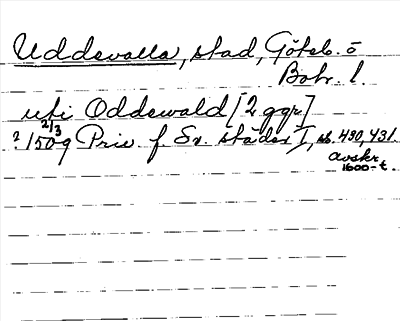 Uddevalla, stad, Göteb. o
Bohr. l.
uti Oddewald [2 ggr]
2/3
? 1509 Priv. f. Sv. städer I, sb. 430, 431.
avskr.
1600-t.